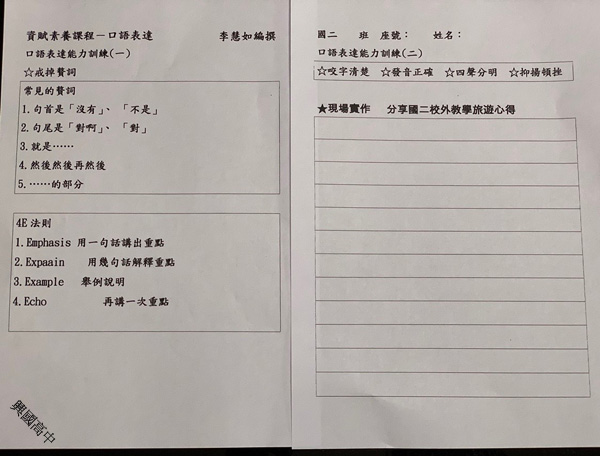 資賦素養課程－口語表達 李慧如編撰
口語表達能力訓練(一)
☆戒掉贅詞
常見的贅詞
1.句首是「沒有」、「不是」
2.句尾是「對啊」、「對」
3.就是……
4.然後然後再然後
5.……的部分
4E法則
1.Emphasis 用一句話講出重點
2.Expaain 用幾句話解釋重點
3.Example 舉例說明
4.Echo 再講一次重點
興國高中
國二 班 座號： 姓名：
口語表達能力訓練(二)
☆咬字清楚 ☆發音正確 ☆四聲分明 ☆抑揚頓挫
★現場實作 分享國二校外教學旅遊心得